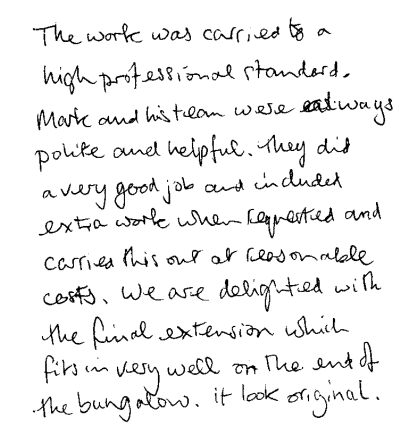 The work was carried to a
high professional standard.
Mark and his team were always
polite and helpful. They did
a very good job and included
extra work when requested and
carried this out at reasonable
costs. We are delighted with
the final extension which
fits in very well on the end of
the bungalow. it look original.